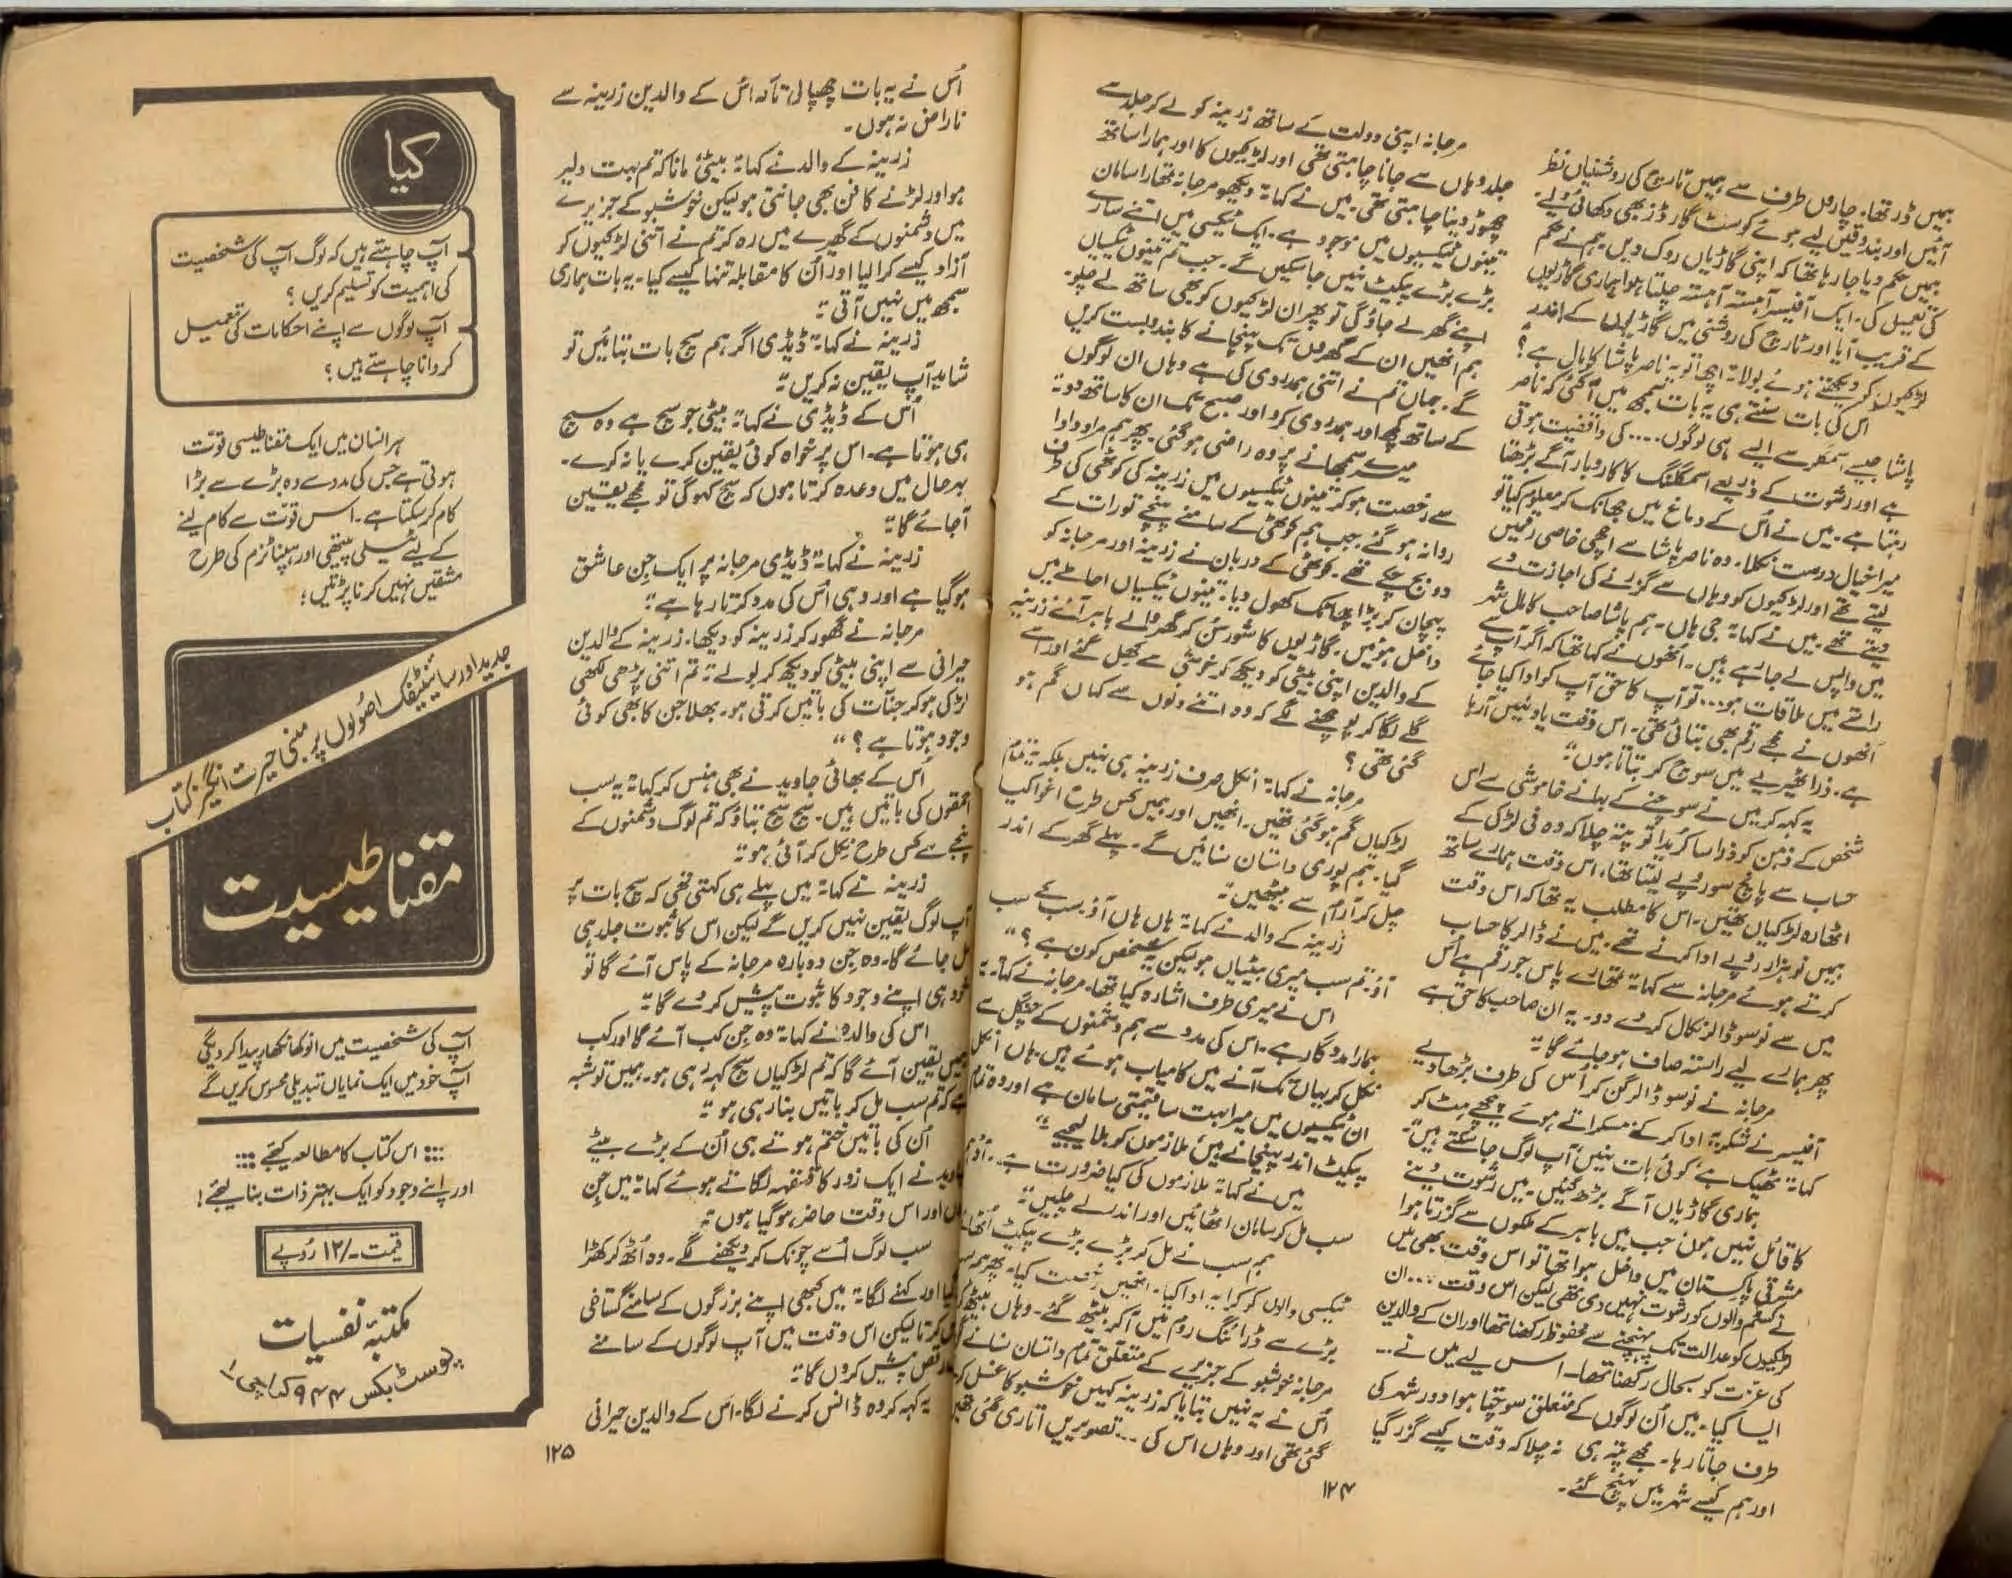 ہمیں ڈر تھا۔ چاروں طرف سے ہمیں ٹارچ کی روشنیاں نظر
آئیں اور بندوقیں لیے ہوئے کوسٹ گارڈز بھی دکھائی دیے۔
ہمیں حکم دیا جا رہا تھا کہ اپنی گاڑیاں روک دیں۔ ہم نے حکم
کی تعمیل کی۔ ایک آفیسر آہستہ آہستہ چلتا ہوا ہماری گاڑیوں
کے قریب آیا اور ٹارچ کی روشنی میں گاڑیوں کے اندر
لڑکیوں کو دیکھتے ہوئے بولا "اچھا تو یہ ناصر پاشا کا مال ہے؟
اس کی بات سنتے ہی یہ بات سمجھ میں آگئی کہ ناصر
پاشا جیسے اسمگلر سے ایسے ہی لوگوں .... کی واقفیت ہوتی
ہے اور رشوت کے ذریعے اسمگلنگ کا کاروبار آگے بڑھتا
رہتا ہے۔ میں نے اُس کے دماغ میں جھانک کر معلوم کیا تو
میرا خیال درست نکلا۔ وہ ناصر پاشا سے اچھی خاصی رقمیں
لیتے تھے اور لڑکیوں کو وہاں سے گزرنے کی اجازت دے
دیتے تھے۔ میں نے کہا "جی ہاں۔ ہم پاشا صاحب کا مال شہر
میں واپس لے جا رہے ہیں۔ اُنھوں نے کہا تھا کہ اگر آپ سے
راستے میں ملاقات ہو... تو آپ کا حق آپ کو ادا کیا جائے
اُنھوں نے مجھے رقم بھی بتائی تھی۔ اس وقت یاد نہیں آ رہا
ہے۔ ذرا ٹھیریے میں سوچ کر بتاتا ہوں"
یہ کہہ کر میں نے سوچنے کے بہانے خاموشی سے اس
شخص کے ذہن کو ذرا سا کُریدا تو پتہ چلا کہ وہ فی لڑکی کے
حساب سے پانچ سو روپے لیتا تھا، اس وقت ہمارے ساتھ
اٹھارہ لڑکیاں تھیں۔ اس کا مطلب یہ تھا کہ اس وقت
ہمیں نو ہزار روپے ادا کرنے تھے۔ میں نے ڈالر کا حساب
کرتے ہوئے مرجانہ سے کہا "تمھارے پاس جو رقم ہے اُس
میں سے نو سو ڈالر نکال کر دے دو۔ یہ ان صاحب کا حق ہے
پھر ہمارے لیے راستہ صاف ہو جائے گا"
مرجانہ نے نو سو ڈالر گن کر اُس کی طرف بڑھا دیے
آفیسر نے شکریہ ادا کر کے مسکراتے ہوئے پیچھے ہٹ کر
کہا "ٹھیک ہے، کوئی بات نہیں، آپ لوگ جا سکتے ہیں"
ہماری گاڑیاں آگے بڑھ گئیں۔ میں رشوت دینے
کا قائل نہیں ہوں، جب میں باہر کے ملکوں سے گزرتا ہوا
مشرقی پاکستان میں داخل ہوا تھا تو اس وقت بھی میں
نے کسٹم والوں کو رشوت نہیں دی تھی لیکن اس وقت ... ان
لڑکیوں کو عدالت تک پہنچنے سے محفوظ رکھنا تھا اور ان کے والدین
کی عزت کو بحال رکھنا تھا۔ اس لیے میں نے ...
ایسا کیا۔ میں اُن لوگوں کے متعلق سوچتا ہوا دور شہر کی
طرف جاتا رہا۔ مجھے پتہ ہی نہ چلا کہ وقت کیسے گزر گیا
اور ہم کیسے شہر میں پہنچ گئے۔
مرجانہ اپنی دولت کے ساتھ زرینہ کو لے کر جلد سے
جلد وہاں سے جانا چاہتی تھی اور لڑکیوں کا اور ہمارا ساتھ
چھوڑ دینا چاہتی تھی۔ میں نے کہا "دیکھو مرجانہ تمھارا سامان
تینوں ٹیکسیوں میں موجود ہے۔ ایک ٹیکسی میں اتنے سارے
بڑے بڑے پیکٹ نہیں جا سکیں گے۔ جب تم تینوں ٹیکسیاں
اپنے گھر لے جاؤ گی تو پھر ان لڑکیوں کو بھی ساتھ لے چلو۔
ہم انھیں ان کے گھروں تک پہنچانے کا بندوبست کریں
گے۔ جہاں تم نے اتنی ہمدردی کی ہے وہاں ان لوگوں
کے ساتھ کچھ اور ہمدردی کرو اور صبح تک ان کا ساتھ دو"
میرے سمجھانے پر وہ راضی ہو گئی۔ پھر ہم مراد دادا
سے رخصت ہو کر تینوں ٹیکسیوں میں زرینہ کی کوٹھی کی طرف
روانہ ہو گئے۔ جب ہم کوٹھی کے سامنے پہنچے تو رات کے
دو بج چکے تھے۔ کوٹھی کے دربان نے زرینہ اور مرجانہ کو
پہچان کر بڑا پھاٹک کھول دیا۔ تینوں ٹیکسیاں احاطے میں
داخل ہوئیں۔ گاڑیوں کا شور سُن کر گھر والے باہر آئے زرینہ
کے والدین اپنی بیٹی کو دیکھ کر خوشی سے کھل گئے اور اسے
گلے لگا کر پوچھنے لگے کہ وہ اتنے دنوں سے کہاں گم ہو
گئی تھی؟
مرجانہ نے کہا "انکل صرف زرینہ ہی نہیں بلکہ یہ تمام
لڑکیاں گم ہو گئی تھیں۔ انھیں اور ہمیں کس طرح اغوا کیا
گیا۔ ہم پوری داستان سنائیں گے۔ پہلے گھر کے اندر
چل کر آرام سے بیٹھیں"
زرینہ کے والد نے کہا "ہاں ہاں آؤ سب کے سب
آؤ۔ تم سب میری بیٹیاں ہو لیکن یہ شخص کون ہے؟"
اس نے میری طرف اشارہ کیا تھا۔ مرجانہ نے کہا "یہ
ہمارا مددگار ہے۔ اس کی مدد سے ہم دشمنوں کے چنگل سے
نکل کر یہاں تک آنے میں کامیاب ہوئے ہیں۔ ہاں انکل
ان ٹیکسیوں میں میرا بہت سا قیمتی سامان ہے اور وہ تمام
پیکٹ اندر پہنچانے ہیں، ملازموں کو بلا لیجیے"
میں نے کہا "ملازموں کی کیا ضرورت ہے ۔۔ آؤ ہم
سب مل کر سامان اٹھائیں اور اندر لے چلیں"
ہم سب نے مل کر بڑے بڑے پیکٹ اُٹھائے
ٹیکسی والوں کو کرایہ ادا کیا۔ انھیں رخصت کیا۔ پھر ہم سب
بڑے سے ڈرائنگ روم میں آ کر بیٹھ گئے۔ وہاں بیٹھ کر
مرجانہ خوشبو کے جزیرے کے متعلق تمام داستان سنانے لگی
اُس نے یہ نہیں بتایا کہ زرینہ کہیں خوشبو کا غسل کر
گئی تھی اور وہاں اس کی ... تصویریں اتاری گئی تھیں
۱۲۴
اُس نے یہ بات چھپا لی تاکہ اُس کے والدین زرینہ سے
ناراض نہ ہوں۔
زرینہ کے والد نے کہا "بیٹی! مانا کہ تم بہت دلیر
ہو اور لڑنے کا فن بھی جانتی ہو لیکن خوشبو کے جزیرے
میں دشمنوں کے گھیرے میں رہ کر تم نے اتنی لڑکیوں کو
آزاد کیسے کرا لیا اور اُن کا مقابلہ تنہا کیسے کیا۔ یہ بات ہماری
سمجھ میں نہیں آتی"
زرینہ نے کہا "ڈیڈی اگر ہم سچ بات بتائیں تو
شاید آپ یقین نہ کریں"
اُس کے ڈیڈی نے کہا "بیٹی جو سچ ہے وہ سچ
ہی ہوتا ہے۔ اس پر خواہ کوئی یقین کرے یا نہ کرے۔
بہرحال میں وعدہ کرتا ہوں کہ سچ کہو گی تو مجھے یقین
آ جائے گا"
زرینہ نے کہا "ڈیڈی مرجانہ پر ایک جِن عاشق
ہو گیا ہے اور وہی اُس کی مدد کرتا رہا ہے"
مرجانہ نے گھور کر زرینہ کو دیکھا۔ زرینہ کے والدین
حیرانی سے اپنی بیٹی کو دیکھ کر بولے "تم اتنی پڑھی لکھی
لڑکی ہو کر جنّات کی باتیں کرتی ہو۔ بھلا جن کا بھی کوئی
وجود ہوتا ہے؟"
اُس کے بھائی جاوید نے بھی ہنس کر کہا "یہ سب
احمقوں کی باتیں ہیں۔ سچ سچ بتاؤ کہ تم لوگ دشمنوں کے
پنجے سے کس طرح نکل کر آئی ہو"
زرینہ نے کہا "میں پہلے ہی کہتی تھی کہ سچ بات پر
آپ لوگ یقین نہیں کریں گے لیکن اس کا ثبوت جلد ہی
مل جائے گا۔ وہ جن دوبارہ مرجانہ کے پاس آئے گا تو
خود ہی اپنے وجود کا ثبوت پیش کر دے گا"
اس کی والدہ نے کہا "وہ جن کب آئے گا اور کب
ہمیں یقین آئے گا کہ تم لڑکیاں سچ کہہ رہی ہو۔ ہمیں تو شبہ
ہے کہ تم سب مل کر باتیں بنا رہی ہو"
اُن کی باتیں ختم ہوتے ہی اُن کے بڑے بیٹے
جاوید نے ایک زور کا قہقہہ لگاتے ہوئے کہا "میں جِن
ہوں اور اس وقت حاضر ہو گیا ہوں"
سب لوگ اُسے چونک کر دیکھنے لگے۔ وہ اُٹھ کر کھڑا
ہو گیا اور کہنے لگا "میں کبھی اپنے بزرگوں کے سامنے گستاخی
نہیں کرتا لیکن اس وقت میں آپ لوگوں کے سامنے
رقص پیش کروں گا"
یہ کہہ کر وہ ڈانس کرنے لگا۔ اُس کے والدین حیرانی
۱۲۵
کیا
آپ چاہتے ہیں کہ لوگ آپ کی شخصیت
کی اہمیت کو تسلیم کریں؟
آپ لوگوں سے اپنے احکامات کی تعمیل
کروانا چاہتے ہیں؟
ہر انسان میں ایک مقناطیسی قوّت
ہوتی ہے جس کی مدد سے وہ بڑے سے بڑا
کام کر سکتا ہے۔ اس قوّت سے کام لینے
کے لیے ٹیلی پیتھی اور ہپناٹزم کی طرح
مشقیں نہیں کرنا پڑتیں؛
جدید اور سائنٹیفک اصُولوں پر مبنی حیرت انگیز کتاب
مقناطیسیت
آپ کی شخصیت میں انوکھا نکھار پیدا کر دیگی
آپ خود میں ایک نمایاں تبدیلی محسوس کریں گے
اس کتاب کا مطالعہ کیجئے
اور اپنے وجود کو ایک بہتر ذات بنا لیجئے!
قیمت -/۱۲ روپے
مکتبۂ نفسیات
پوسٹ بکس ۹۴۴ کراچی ۱